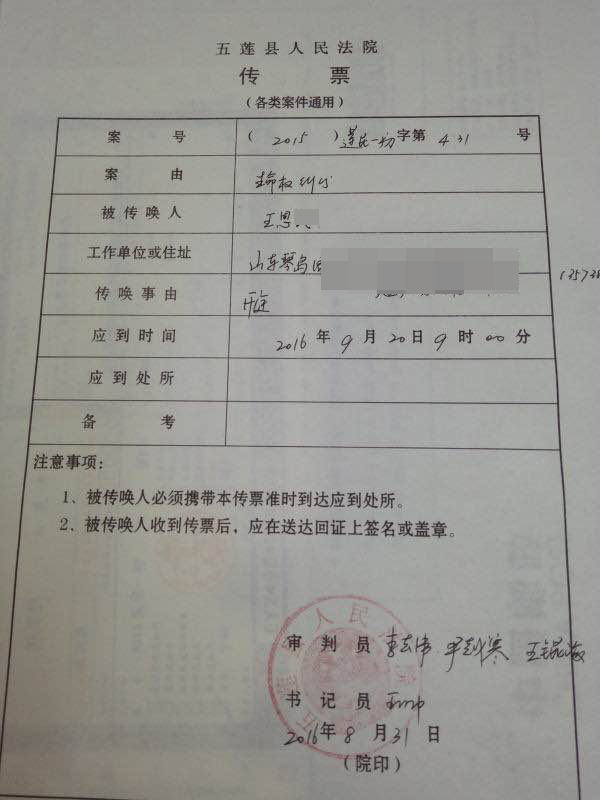 五莲县人民法院
传 票
（各类案件通用）
案 号 （ 2015 ）莲民一初 字第 431 号
案 由 生命权纠纷
被传唤人 王恩
工作单位或住址 山东琴岛
传唤事由 开庭
13573
应到时间 2016 年 9 月 20 日 9 时 00 分
应到处所
备 考
注意事项：
1、被传唤人必须携带本传票准时到达应到处所。
2、被传唤人收到传票后，应在送达回证上签名或盖章。
审 判 员
书 记 员
2016年 8 月 31 日
（院印）
五莲县人民法院